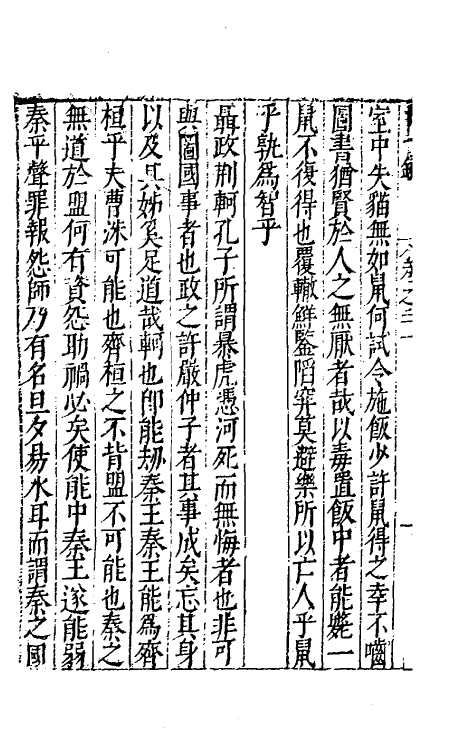 室中失猫無如鼠何試令施飯少許鼠得之幸不嚙
圖書猶賢於人之無厭者哉以毒置飯中者能斃一
鼠不復得也覆轍鮮鑒陷穽莫避樂所以亡人乎鼠
乎孰為智乎
聶政荆軻孔子所謂暴虎憑河死而無悔者也非可
與圖國事者也政之許嚴仲子者其事成矣忘其身
以及其姊奚足道哉軻也卽能刼秦王秦王能為齊
桓乎夫曹沫可能也齊桓之不背盟不可能也秦之
無道於盟何有資怨助禍必矣使能中秦王遂能弱
秦乎聲罪報怨師乃有名旦夕易水耳而謂秦之國